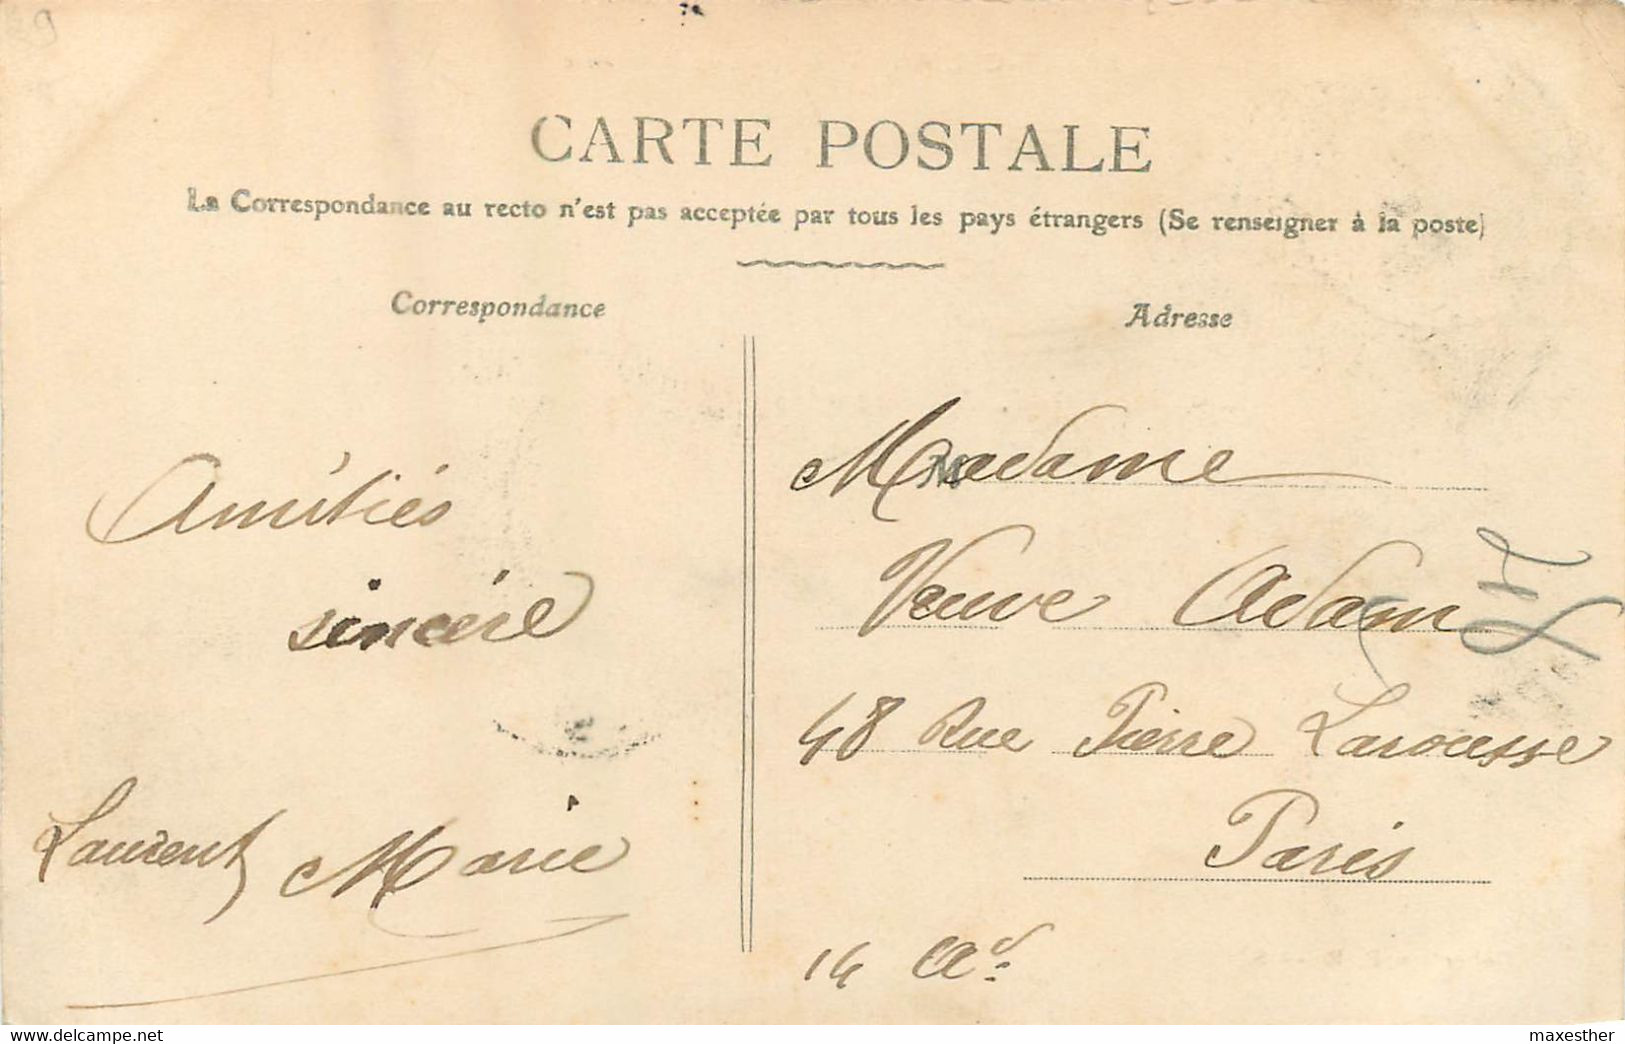 CARTE POSTALE
La Correspondance au recto n'est pas acceptée par tous les pays étrangers (Se renseigner à la poste)
Correspondance
Adresse
Amitiés
sincère
Laurent Marie
Madame
Veuve Adam
48 Rue Pierre Larousse
Paris
14 Ar
www.delcampe.net
maxesther